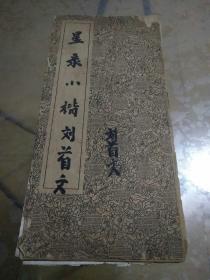 星录小楷刘首文
刘首文